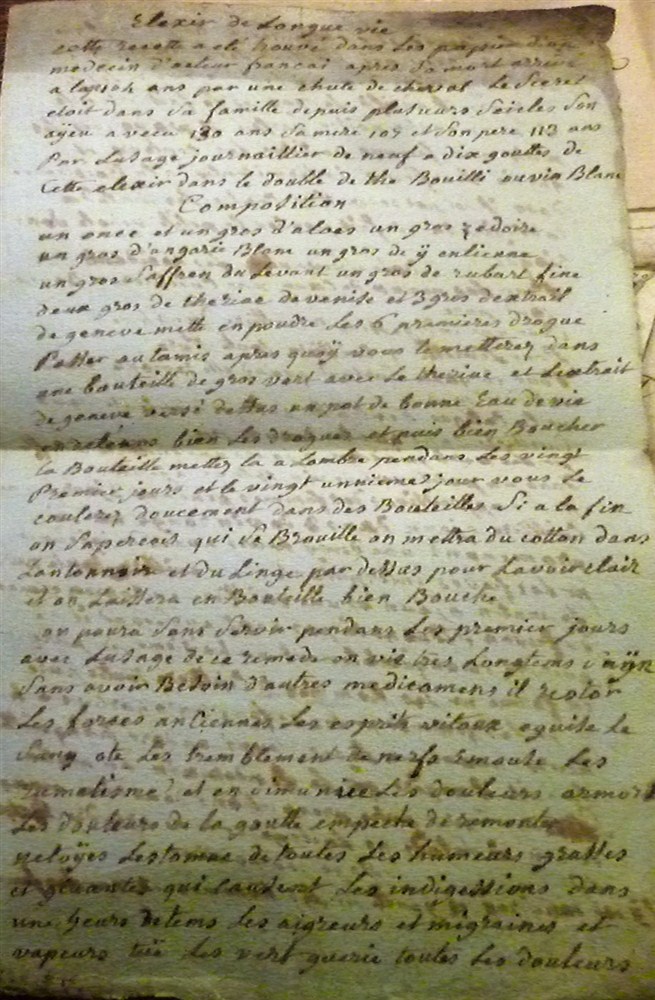 Elexir de Longue vie
cette recette a eté trouvé dans les papier d'un
medecin d'acteur francai apres sa mort arrivé
a lage 104 ans par une chute de cheval Le Secret
etoit dans sa famille depuis plusieurs Seicles Son
ayeu a vecu 130 ans Sa mere 107 et Son pere 113 ans
Par Lusage journaillier de neuf a dix gouttes de
Cette elexir dans le double de the Bouilli ou vin Blanc
Composition
un once et un gros d'aloes un gros zedoire
un gros d'angaric Blanc un gros de
un gros Saffren du Levant un gros de rubart fine
deux gros de theriac de venise et 3 gros dextrait
de geneve mette en poudre Les 6 premieres drogue
Passer au tamis apres quoÿ vous le metterez dans
une bouteille de gros vert avec Le theriac et Lextrait
de geneve versé dessus un pot de bonne Eau de vie
bien Les drogues et puis bien Boucher
la Bouteille mettez la a Lombre pendans Les vingt
Premier jours et le vingt unniemes jour vous Le
coulerez doucement dans des Bouteilles Si a la fin
on Sapercois qui Se Brouille on mettra du cotton dans
Lantonnoir et du Linge par dessus pour Lavoir clair
et on Laissera en Bouteille bien Bouché
on poura Sans Servir pendans Les premier jours
avec Lusage de ce remede on vie tres Longtems
Sans avoir Besoin d'autres medicamens il restor
Les forces anciennes Les esprits vitaux eguise Le
Sang ote Les tremblement de nerfs Emouste Les
rumatisme et en Les douleurs
Les douleurs de la goutte empeche de remonter
netoÿes Lestomac de toutes Les humeurs grasses
et gluantes qui causent Les indigestions dans
une heure de tems Les aigreurs et migraines et
vapeurs tüe Les vert guerie toutes Les douleurs